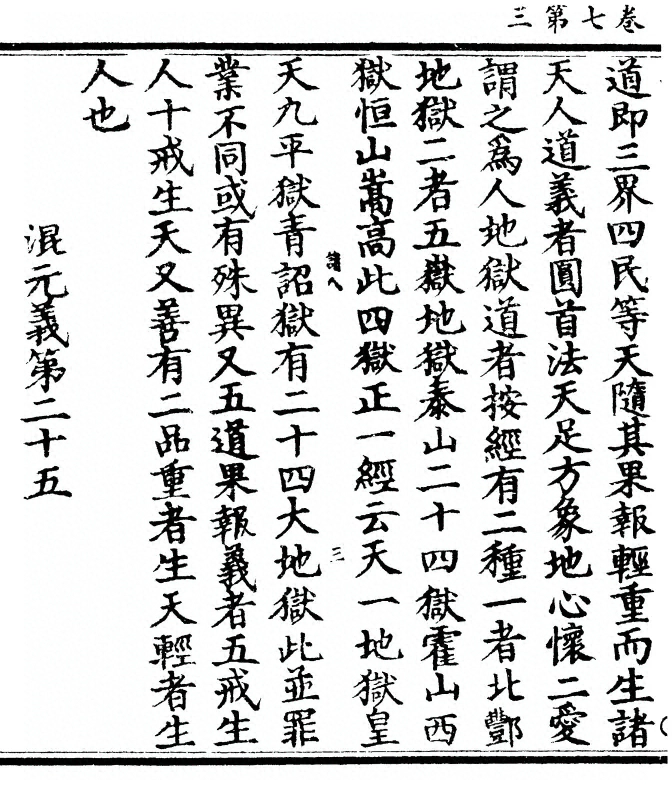 卷七第三
道即三界四民等天隨其果報輕重而生諸
天人道義者圓首法天足方象地心懷二愛
謂之爲人地獄道者按經有二種一者北酆
地獄二者五嶽地獄泰山二十四獄霍山西
獄恒山嵩高此四獄正一經云天一地獄皇
天九平獄青詔獄有二十四大地獄此並罪
業不同或有殊異又五道果報義者五戒生
人十戒生天又善有二品重者生天輕者生
人也
混元義第二十五